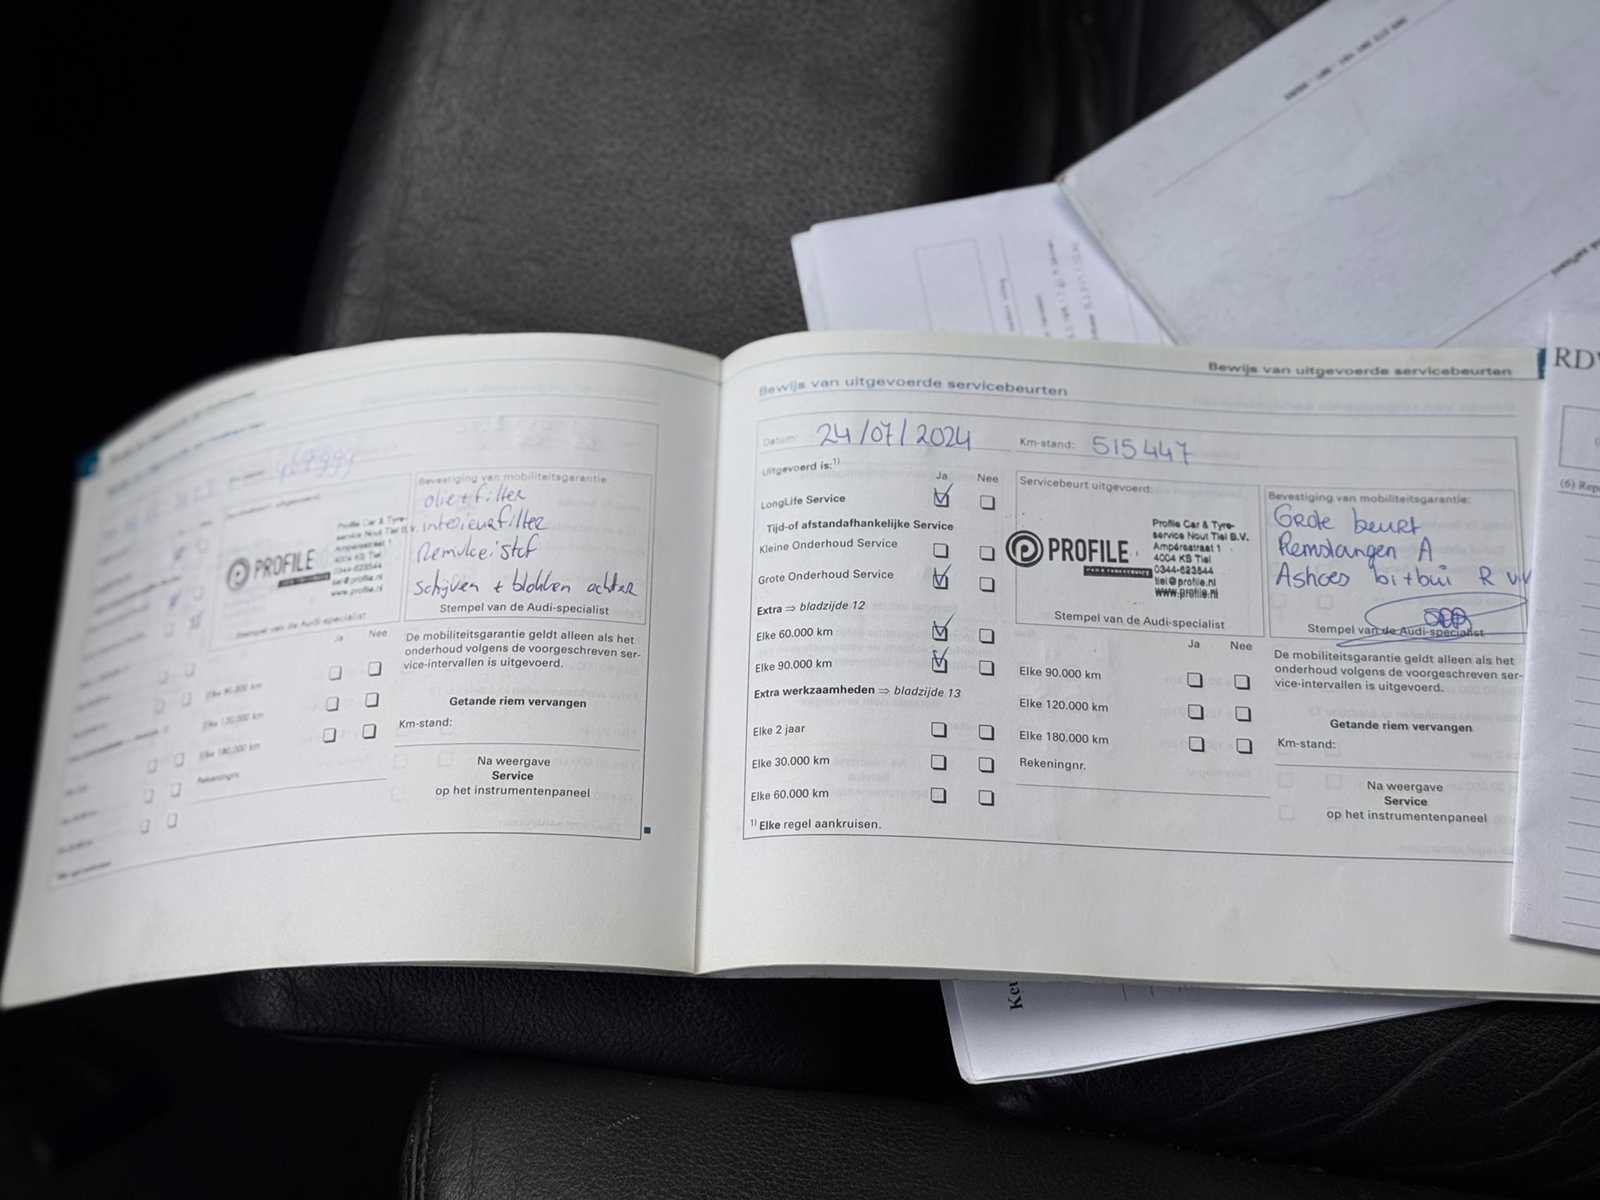 oliet filter
interieurfilter
Remvloeistof
schijven + blokken achter
Bevestiging van mobiliteitsgarantie
PROFILE
Profile Car & Tyre-
service Nout Tiel B.V.
Ampèrestraat 1
4004 KS Tiel
0344-623544
tiel@profile.nl
www.profile.nl
Stempel van de Audi-specialist
Stempel van de Audi-specialist
Ja
Nee
De mobiliteitsgarantie geldt alleen als het
onderhoud volgens de voorgeschreven ser-
vice-intervallen is uitgevoerd.
Elke 90.000 km
Elke 120.000 km
Elke 180.000 km
Rekeningnr.
Getande riem vervangen
Km-stand:
Na weergave
Service
op het instrumentenpaneel
Bewijs van uitgevoerde servicebeurten
Bewijs van uitgevoerde servicebeurten
Datum: 24/07/2024
Km-stand: 515447
Uitgevoerd is:1)
Ja
Nee
LongLife Service
Tijd-of afstandafhankelijke Service
Kleine Onderhoud Service
Grote Onderhoud Service
Extra ⇒ bladzijde 12
Elke 60.000 km
Elke 90.000 km
Extra werkzaamheden ⇒ bladzijde 13
Elke 2 jaar
Elke 30.000 km
Elke 60.000 km
1) Elke regel aankruisen.
Servicebeurt uitgevoerd:
PROFILE
Profile Car & Tyre-
service Nout Tiel B.V.
Ampèrestraat 1
4004 KS Tiel
0344-623544
tiel@profile.nl
www.profile.nl
Stempel van de Audi-specialist
Ja
Nee
Elke 90.000 km
Elke 120.000 km
Elke 180.000 km
Rekeningnr.
Bevestiging van mobiliteitsgarantie:
Grote beurt
Remslangen A
Ashoes bi+bui R v
Stempel van de Audi-specialist
De mobiliteitsgarantie geldt alleen als het
onderhoud volgens de voorgeschreven ser-
vice-intervallen is uitgevoerd.
Getande riem vervangen
Km-stand:
Na weergave
Service
op het instrumentenpaneel
RDW
(6) Rep